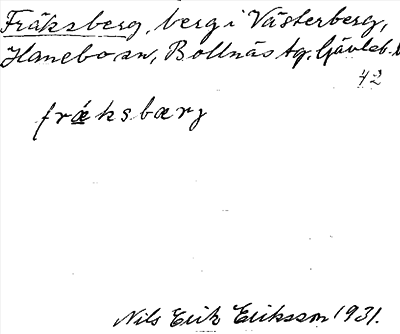 Fräksberg, berg i Västerberg,
Hanebo sn, Bollnäs tg, Gävleb. l
42
frǽksbærj
Nils Erik Eriksson 1931.